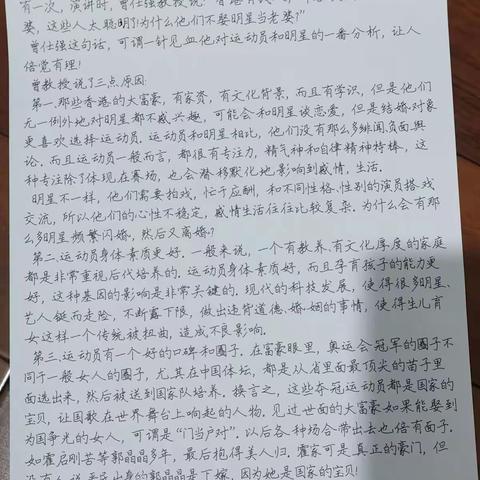 有一次，演讲时，曾仕强教授说：
婆，这些人太聪明了为什么他们不娶明星当老婆？”
曾仕强这句话，可谓一针见血他对运动员和明星的一番分析，让人
倍觉有理！
曾教授说了三点原因：
第一、那些香港的大富豪，有家资，有文化背景，而且有学识，但是他们
无一例外地对明星都不感兴趣，可能会和明星谈恋爱，但是结婚对象
更喜欢选择运动员。运动员和明星相比，他们没有那么多绯闻、负面舆
论，而且运动员一般而言，都很有专注力，精气神和自律精神特棒，这
种专注除了体现在赛场，也会潜移默化地影响到感情，生活。
明星不一样，他们需要拍戏，忙于应酬，和不同性格、性别的演员搭戏
交流，所以他们的心性不稳定，感情生活往往比较复杂。为什么会有那
么多明星频繁闪婚，然后又离婚？
第二、运动员身体素质更好。一般来说，一个有教养、有文化厚度的家庭
都是非常重视后代培养的。运动员身体素质好，而且孕育孩子的能力更
好，这种基因的影响是非常关键的。现代的科技发展，使得很多明星、
艺人铤而走险，不断露下限，做出违背道德、婚姻的事情，使得生儿育
女这样一个传统被扭曲，造成不良影响。
第三、运动员有一个好的口碑和圈子。在富豪眼里，奥运会冠军的圈子不
同于一般女人的圈子，尤其在中国体坛，都是从省里面最顶尖的苗子里
面选出来，然后被送到国家队培养。换言之，这些夺冠运动员都是国家的
宝贝，让国歌在世界舞台上响起的人物。见过世面的大富豪如果能娶到
为国争光的女人，可谓是“门当户对”。以后各种场合带出去也倍有面子。
如霍启刚苦等郭晶晶多年，最后抱得美人归。霍家可是真正的豪门，但
郭晶晶是下嫁，因为她是国家的宝贝！